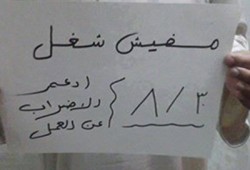 مفيش شغل
ادعم
الاضراب
عن العمل
٨/٣